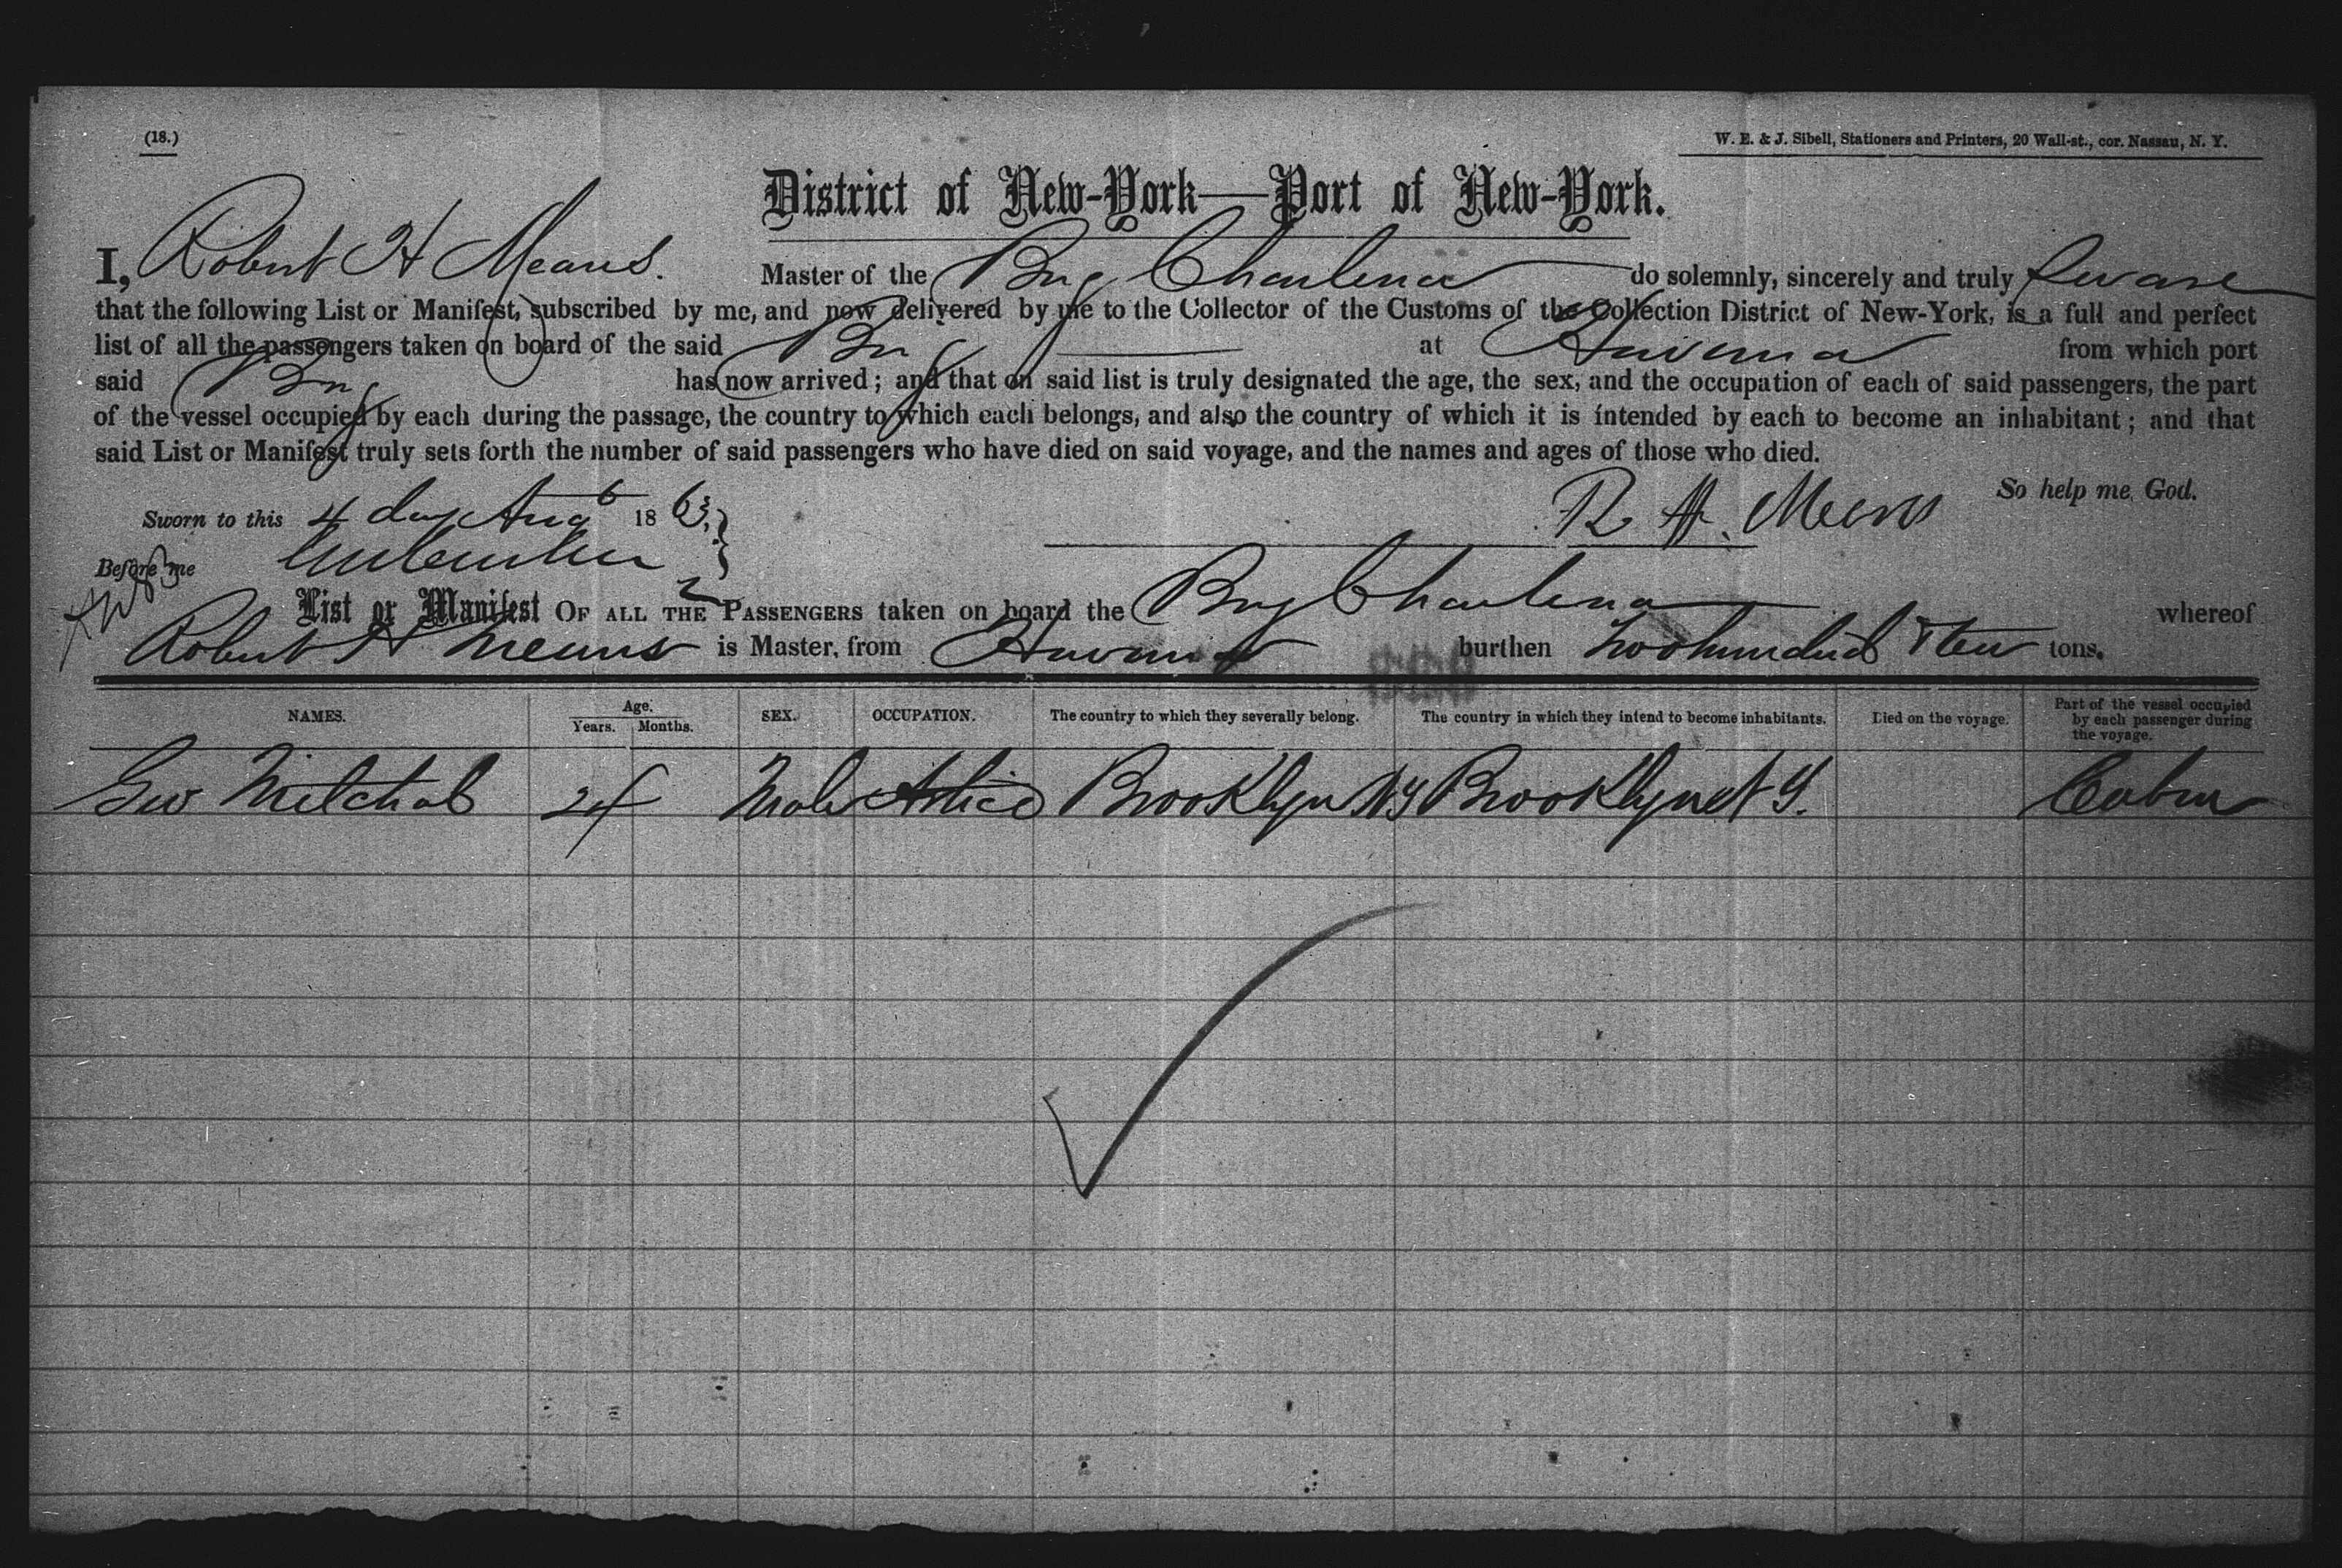 (18.)
W. E. & J. Sibell, Stationers and Printers, 20 Wall-st., cor. Nassau, N. Y.
District of New-York—Port of New-York.
I, Robert H Means. Master of the Brig Charlena do solemnly, sincerely and truly Swear
that the following List or Manifest, subscribed by me, and now delivered by me to the Collector of the Customs of the Collection District of New-York, is a full and perfect
list of all the passengers taken on board of the said Brig at Havana from which port
said Brig has now arrived; and that on said list is truly designated the age, the sex, and the occupation of each of said passengers, the part
of the vessel occupied by each during the passage, the country to which each belongs, and also the country of which it is intended by each to become an inhabitant; and that
said List or Manifest truly sets forth the number of said passengers who have died on said voyage, and the names and ages of those who died.
So help me God.
Sworn to this 4 day Aug 1863.
R H. Means
Before me
List or Manifest OF ALL THE PASSENGERS taken on board the Brig Charlena whereof
Robert H Means is Master, from Havana burthen Two hundred & ten tons.
NAMES. Age. Years. Months. SEX. OCCUPATION. The country to which they severally belong. The country in which they intend to become inhabitants. Died on the voyage. Part of the vessel occupied by each passenger during the voyage.
Geo Mitchel 24 Male Brooklyn NY Brooklyn N Y. Cabin